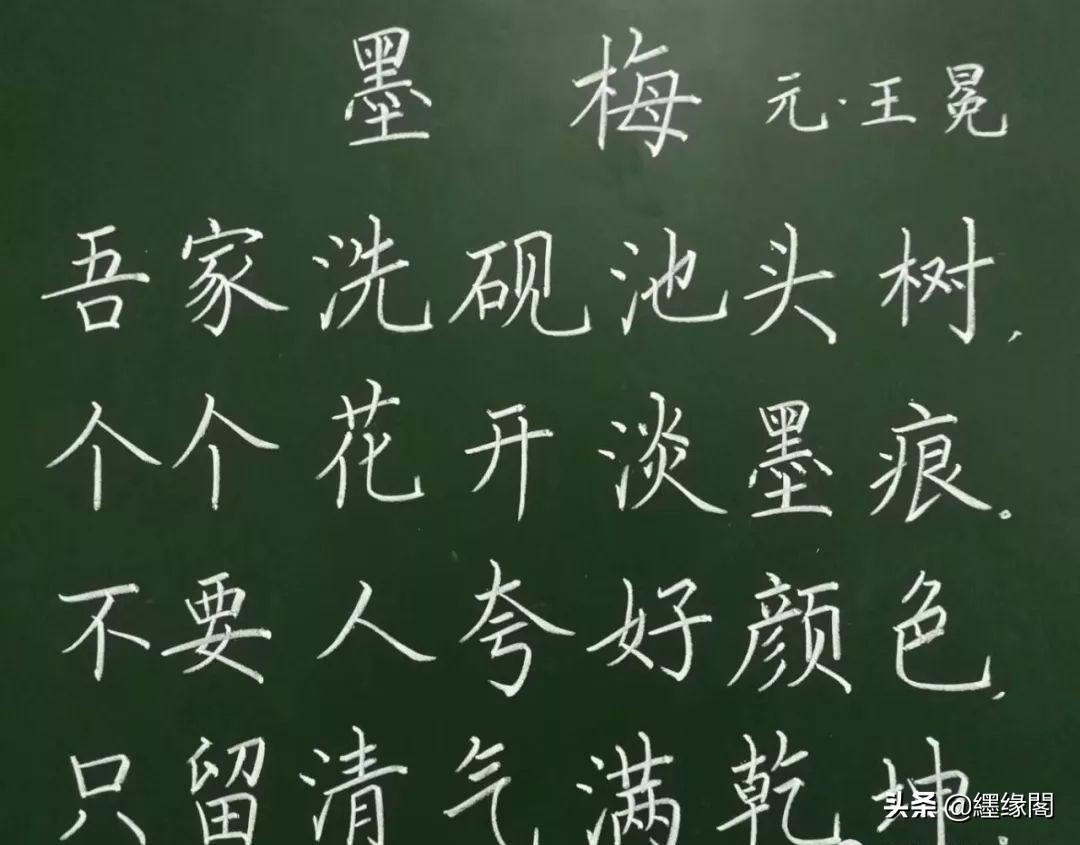 墨梅 元·王冕
吾家洗砚池头树,
个个花开淡墨痕。
不要人夸好颜色,
只留清气满乾坤。
头条 @纆缘閣